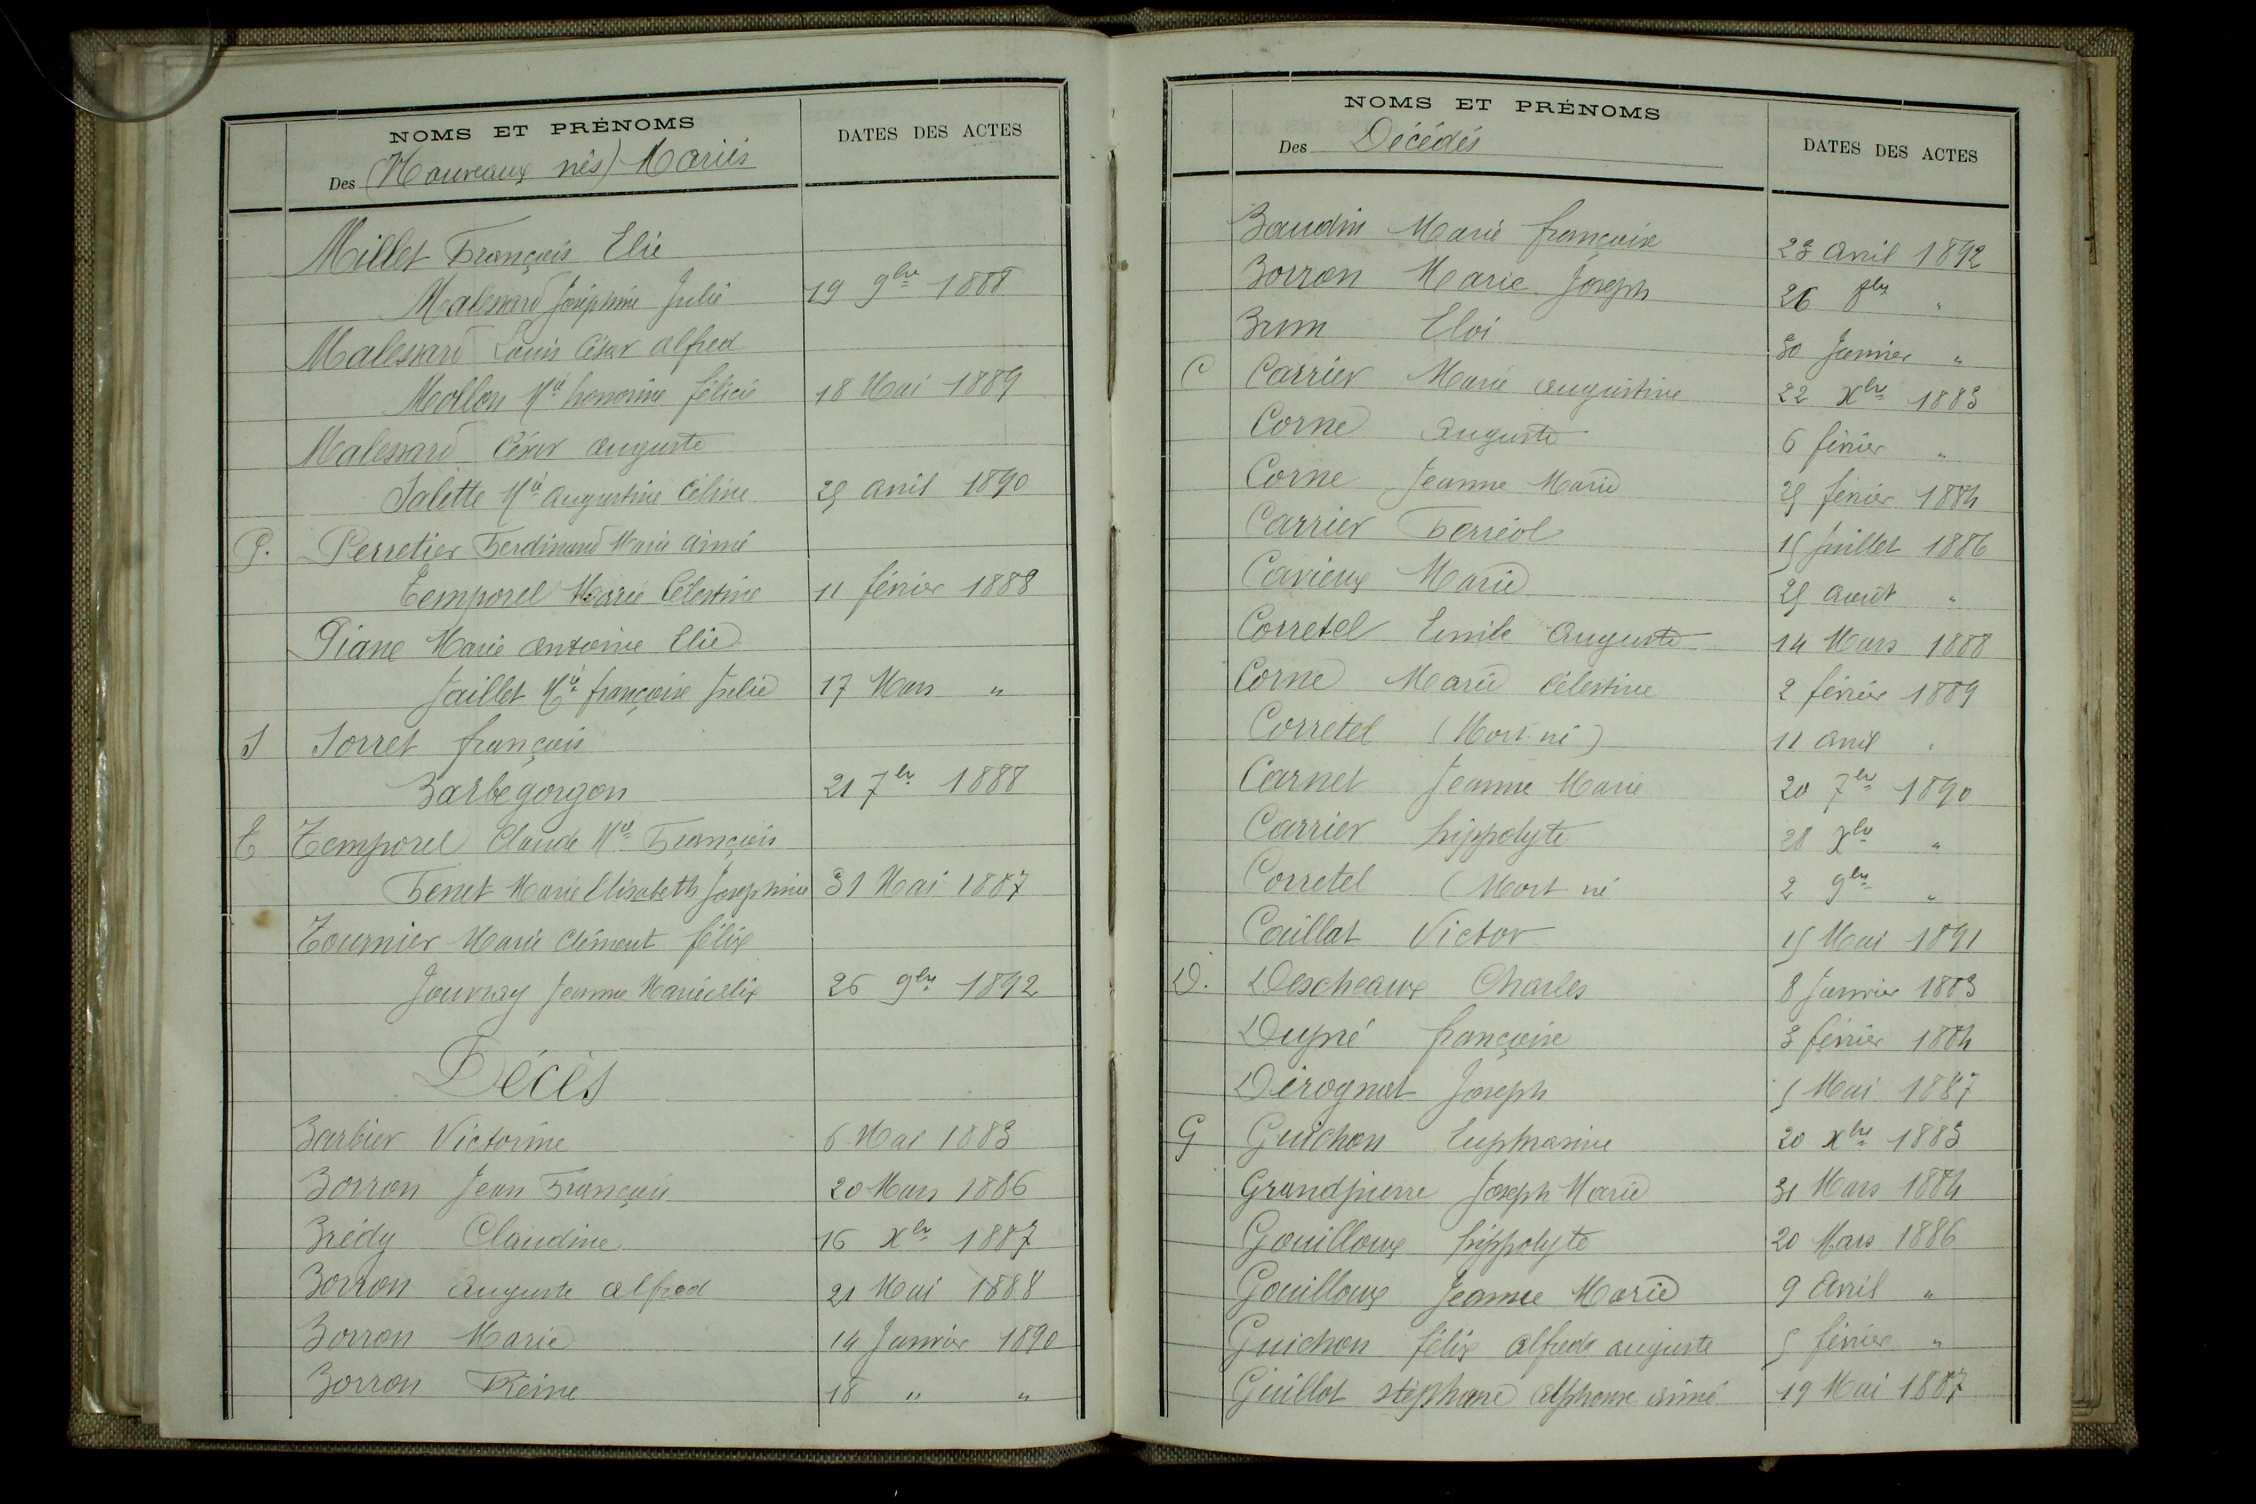 NOMS ET PRÉNOMS
Des (Nouveaux nés) Mariés
DATES DES ACTES
Millet François Elie
Malessard Joséphine Julie 19 9bre 1888
Malessard Louis César alfred
Mollon Mie honorine félicie 18 Mai 1889
Malessard César auguste
Salette Mie augustine Céline 25 avril 1890
P. Perretier Ferdinand Marie aimé
Temporel Marie Célestine 11 février 1888
Piane Marie antoine Elie
Jaillet Mie françoise Julie 17 Mars "
S Sorret françois
Barbe gorgon 21 7br 1888
T Temporel Claude Mie François
Fenet Marie Elisabeth Josephine 31 Mai 1887
Tournier Marie Clément félix
Jouvray Jeanne Marie 26 9bre 1892
Décès
Barbier Victorine 6 Mai 1883
Borron Jean François 20 Mars 1886
Brédy Claudine 16 Xbr 1887
Borron auguste alfred 21 Mai 1888
Borron Marie 14 Janvier 1890
Borron Reine 18 " "
NOMS ET PRÉNOMS
Des Décédés
DATES DES ACTES
Baudin Marie françoise 23 avril 1892
Borron Marie Joseph 26 8bre "
Brun Eloi 30 Janvier "
C Carrier Marie augustine 22 Xbre 1883
Corne auguste 6 février "
Corne Jeanne Marie 25 février 1884
Carrier Ferréol 15 Juillet 1886
Cavieux Marie 25 août "
Corretel Emile auguste 14 Mars 1888
Corne Marie Célestine 2 février 1889
Corretel (Mort né) 11 avril "
Carnet Jeanne Marie 20 7br 1890
Carrier hippolyte 28 Xbr "
Corretel (Mort né 2 9bre "
Couillat Victor 15 Mai 1891
D. Descheaux Charles 8 Janvier 1883
Dupré françoise 3 février 1884
Dérognat Joseph 5 Mai 1887
G Guichon Euphrasine 20 Xbre 1883
Grandpierre Joseph Marie 31 Mars 1884
Gouilloux hippolyte 20 Mars 1886
Gouilloux Jeanne Marie 9 avril "
Guichon félix alfred auguste 5 février "
Guillot stéphane alphonse aimé 19 Mai 1887